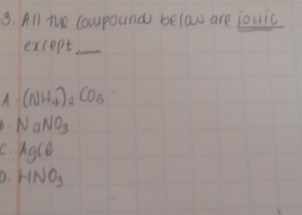 3. All the compounds below are ionic
except __
A. (NH₄)₂ CO₃
B. NaNO₃
C. AgCl
D. HNO₃